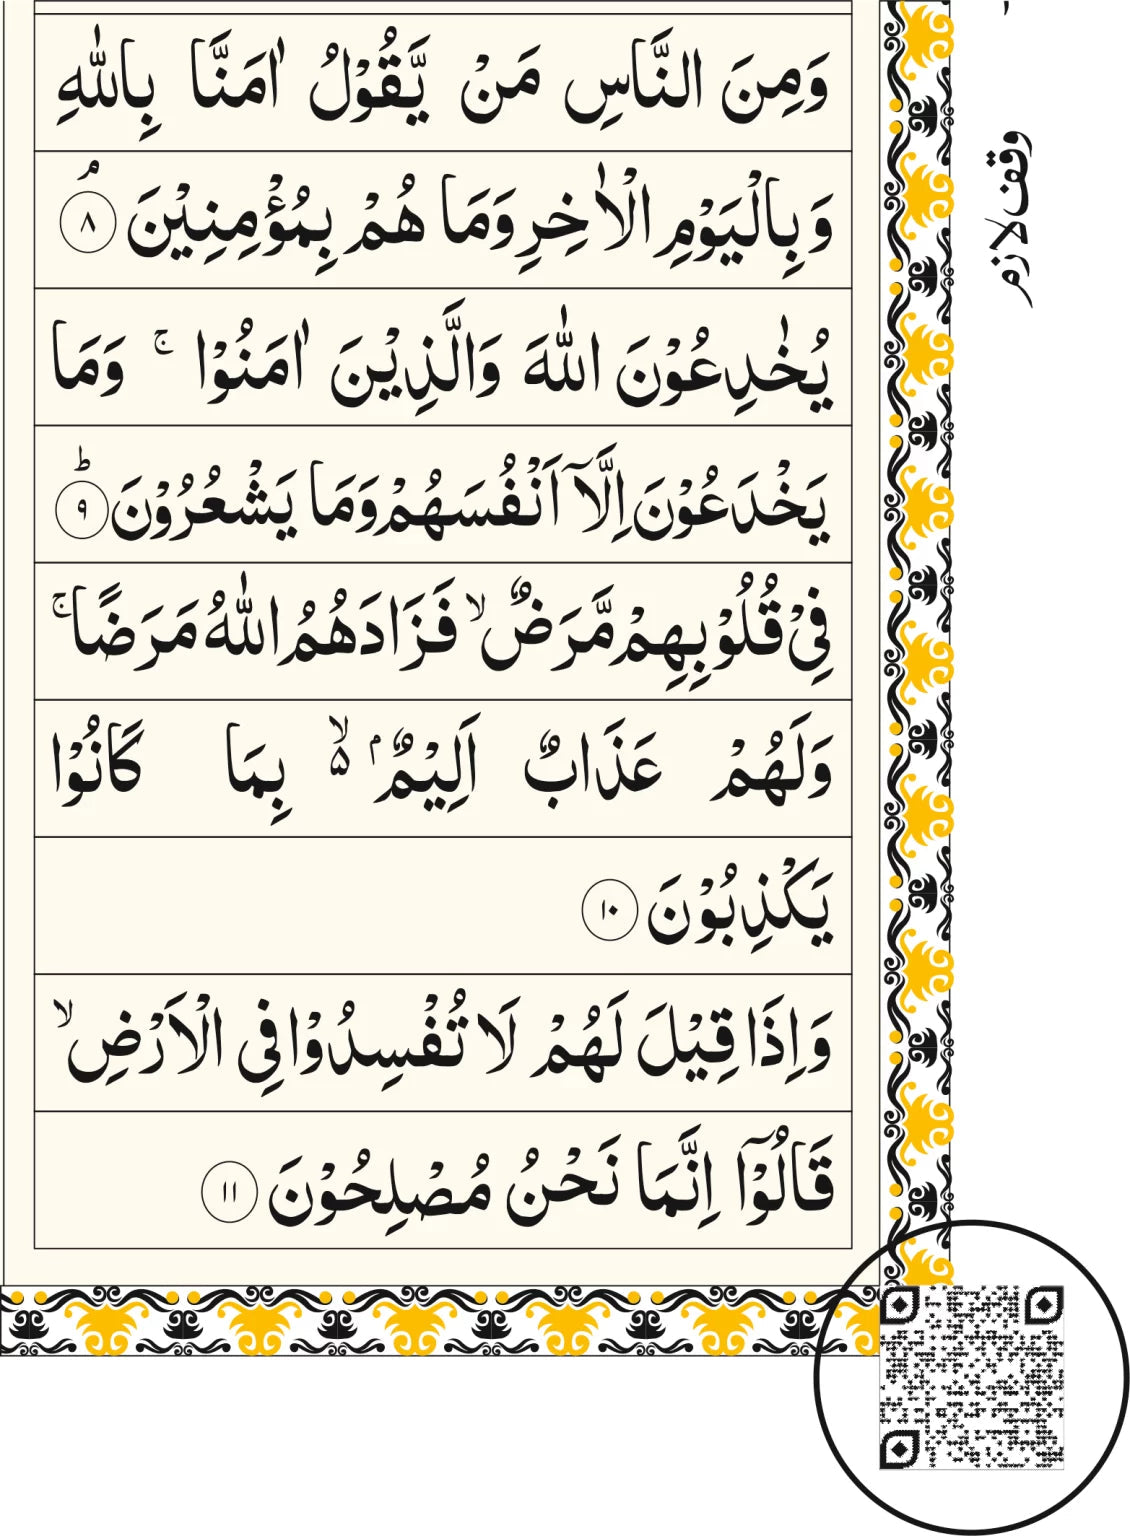 وَمِنَ النَّاسِ مَنْ يَّقُوْلُ اٰمَنَّا بِاللّٰهِ
وَبِالْيَوْمِ الْاٰخِرِ وَمَا هُمْ بِمُؤْمِنِيْنَ ۘ ٨
وقف لازم
يُخٰدِعُوْنَ اللّٰهَ وَالَّذِيْنَ اٰمَنُوْا ۚ وَمَا
يَخْدَعُوْنَ اِلَّآ اَنْفُسَهُمْ وَمَا يَشْعُرُوْنَ ؕ ٩
فِيْ قُلُوْبِهِمْ مَّرَضٌ ۙ فَزَادَهُمُ اللّٰهُ مَرَضًا ۚ
وَلَهُمْ عَذَابٌ اَلِيْمٌ ۢ ۙ ۵ بِمَا كَانُوْا
يَكْذِبُوْنَ ١٠
وَاِذَا قِيْلَ لَهُمْ لَا تُفْسِدُوْا فِي الْاَرْضِ ۙ
قَالُوْٓا اِنَّمَا نَحْنُ مُصْلِحُوْنَ ١١